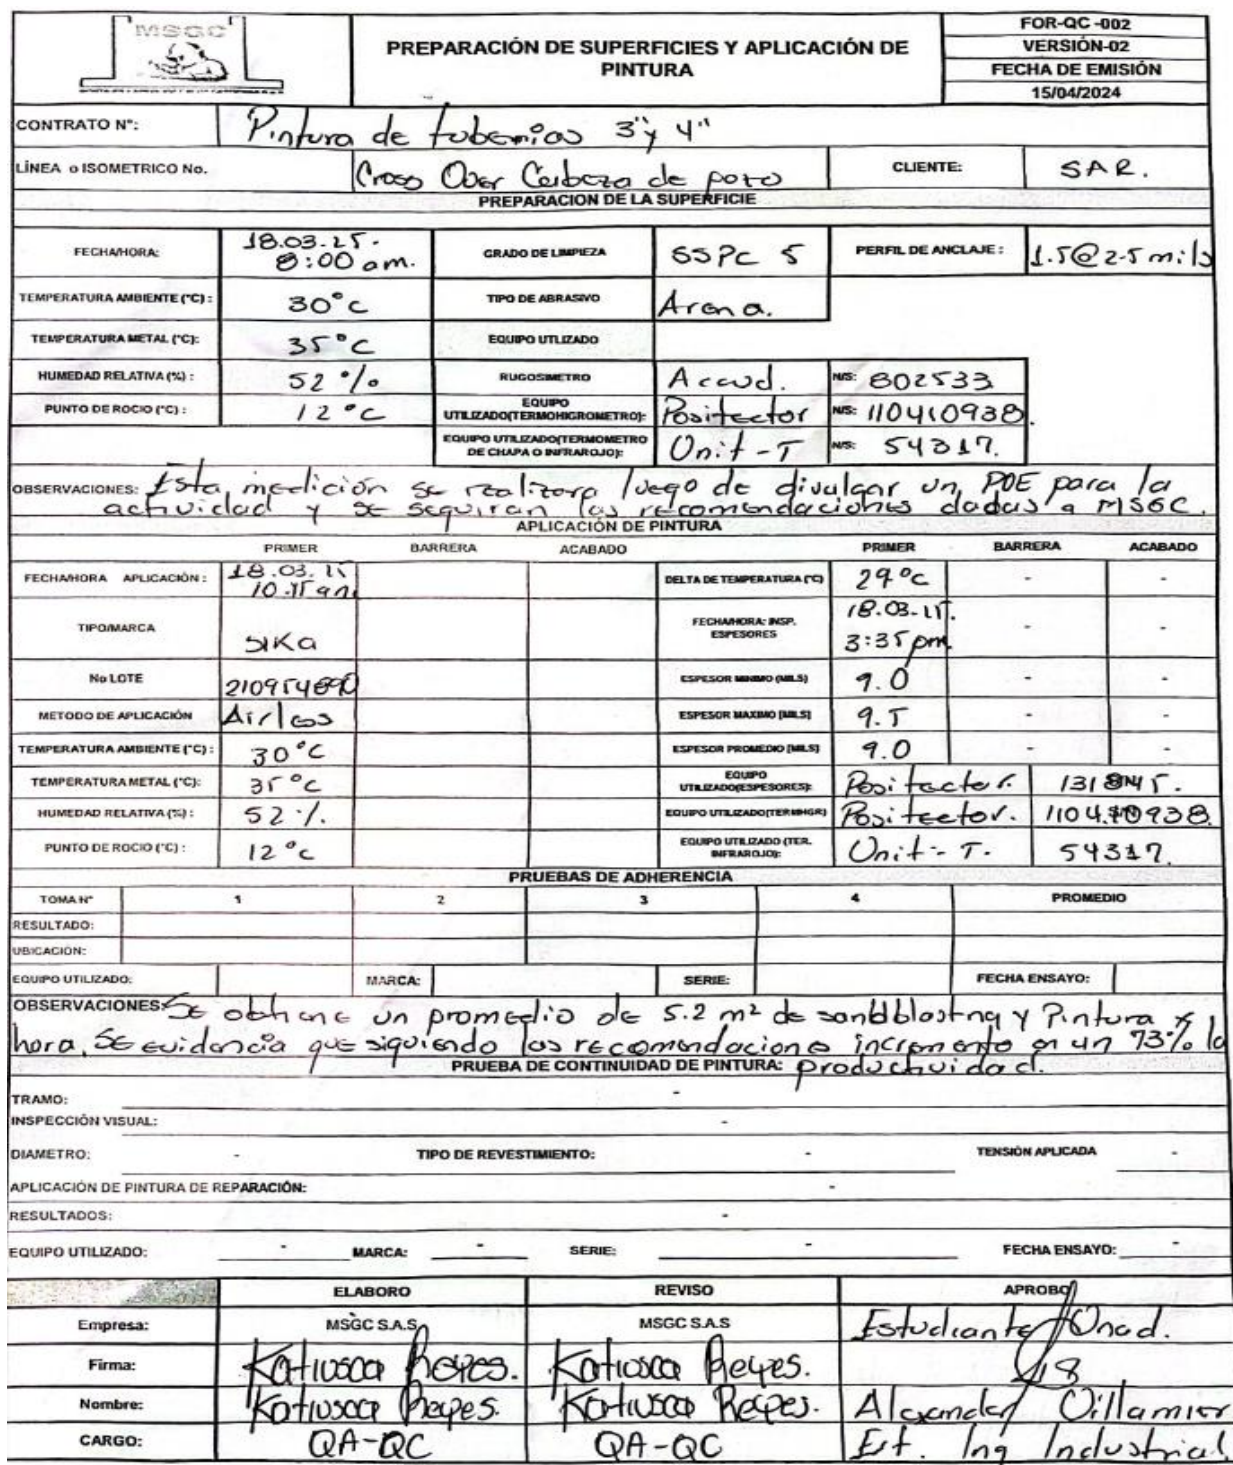 MSGC
PREPARACIÓN DE SUPERFICIES Y APLICACIÓN DE
PINTURA
FOR-QC -002
VERSIÓN-02
FECHA DE EMISIÓN
15/04/2024
CONTRATO N°: Pintura de tuberias 3" y 4"
LÍNEA o ISOMETRICO No. Cross Over Cabeza de pozo CLIENTE: SAR.
PREPARACION DE LA SUPERFICIE
FECHA/HORA: 18.03.25. 8:00 am. GRADO DE LIMPIEZA SSPC 5 PERFIL DE ANCLAJE : 1.5@2.5 mils
TEMPERATURA AMBIENTE (°C) : 30°C TIPO DE ABRASIVO Arena.
TEMPERATURA METAL (°C): 35°C EQUIPO UTLIZADO
HUMEDAD RELATIVA (%) : 52 % RUGOSIMETRO Accud. N/S: 802533
PUNTO DE ROCIO (°C) : 12 °C EQUIPO UTILIZADO(TERMOHIGROMETRO): Positector N/S: 110410938
EQUIPO UTILIZADO(TERMOMETRO DE CHAPA O INFRAROJO): Unit-T N/S: 54317.
OBSERVACIONES: Esta medición se realizara luego de divulgar un POE para la
actividad y se seguiran las recomendaciones dadas a MSGC.
APLICACIÓN DE PINTURA
PRIMER BARRERA ACABADO PRIMER BARRERA ACABADO
FECHA/HORA APLICACIÓN : 18.03.25 10:15 am DELTA DE TEMPERATURA (°C) 29°C - -
TIPO/MARCA SIKa FECHA/HORA: INSP. ESPESORES 18.03.25. 3:35 pm - -
No LOTE ESPESOR MINIMO (MILS) 9.0 - -
METODO DE APLICACIÓN Airles ESPESOR MAXIMO [MILS] 9.5 - -
TEMPERATURA AMBIENTE (°C) : 30°C ESPESOR PROMEDIO [MILS] 9.0 - -
TEMPERATURA METAL (°C): 35°C EQUIPO UTILIZADO(ESPESORES): Positector.
HUMEDAD RELATIVA (%) : 52 % EQUIPO UTILIZADO(TERMHGR) Positector. 110410938.
PUNTO DE ROCIO (°C) : 12 °C EQUIPO UTILIZADO (TER. INFRAROJO): Unit - T. 54317.
PRUEBAS DE ADHERENCIA
TOMA N° 1 2 3 4 PROMEDIO
RESULTADO:
UBICACIÓN:
EQUIPO UTILIZADO: MARCA: SERIE: FECHA ENSAYO:
OBSERVACIONES: Se obtiene un promedio de 5.2 m² de sandblasting y Pintura x
hora. Se evidencia que siguiendo las recomendaciones incremento en un 73% la
PRUEBA DE CONTINUIDAD DE PINTURA: productividad.
TRAMO: -
INSPECCIÓN VISUAL: -
DIAMETRO: - TIPO DE REVESTIMIENTO: - TENSIÓN APLICADA -
APLICACIÓN DE PINTURA DE REPARACIÓN: -
RESULTADOS: -
EQUIPO UTILIZADO: - MARCA: - SERIE: - FECHA ENSAYO: -
ELABORO REVISO APROBO
Empresa: MSGC S.A.S MSGC S.A.S Estudiante Unad.
Firma: Katiusca Reyes. Katiusca Reyes.
Nombre: Katiusca Reyes. Katiusca Reyes. Alexander Villamier
CARGO: QA-QC QA-QC Est. Ing Industrial.